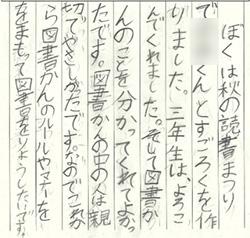 ぼくは秋の読書まつり
で くんとすごろくを作
りました。三年生は、よろこ
んでくれました。そして図書か
んのことを分かってくれてよかっ
たです。図書かんの中の人は親
切でやさしかたです。なのでこれか
ら図書かんのルールやマナーを
をまもって図書をりようしたいです。